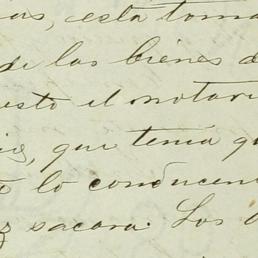 as, esta toma
de los bienes d
esto el notari
que tenia qu
lo conducen
sacara. Los